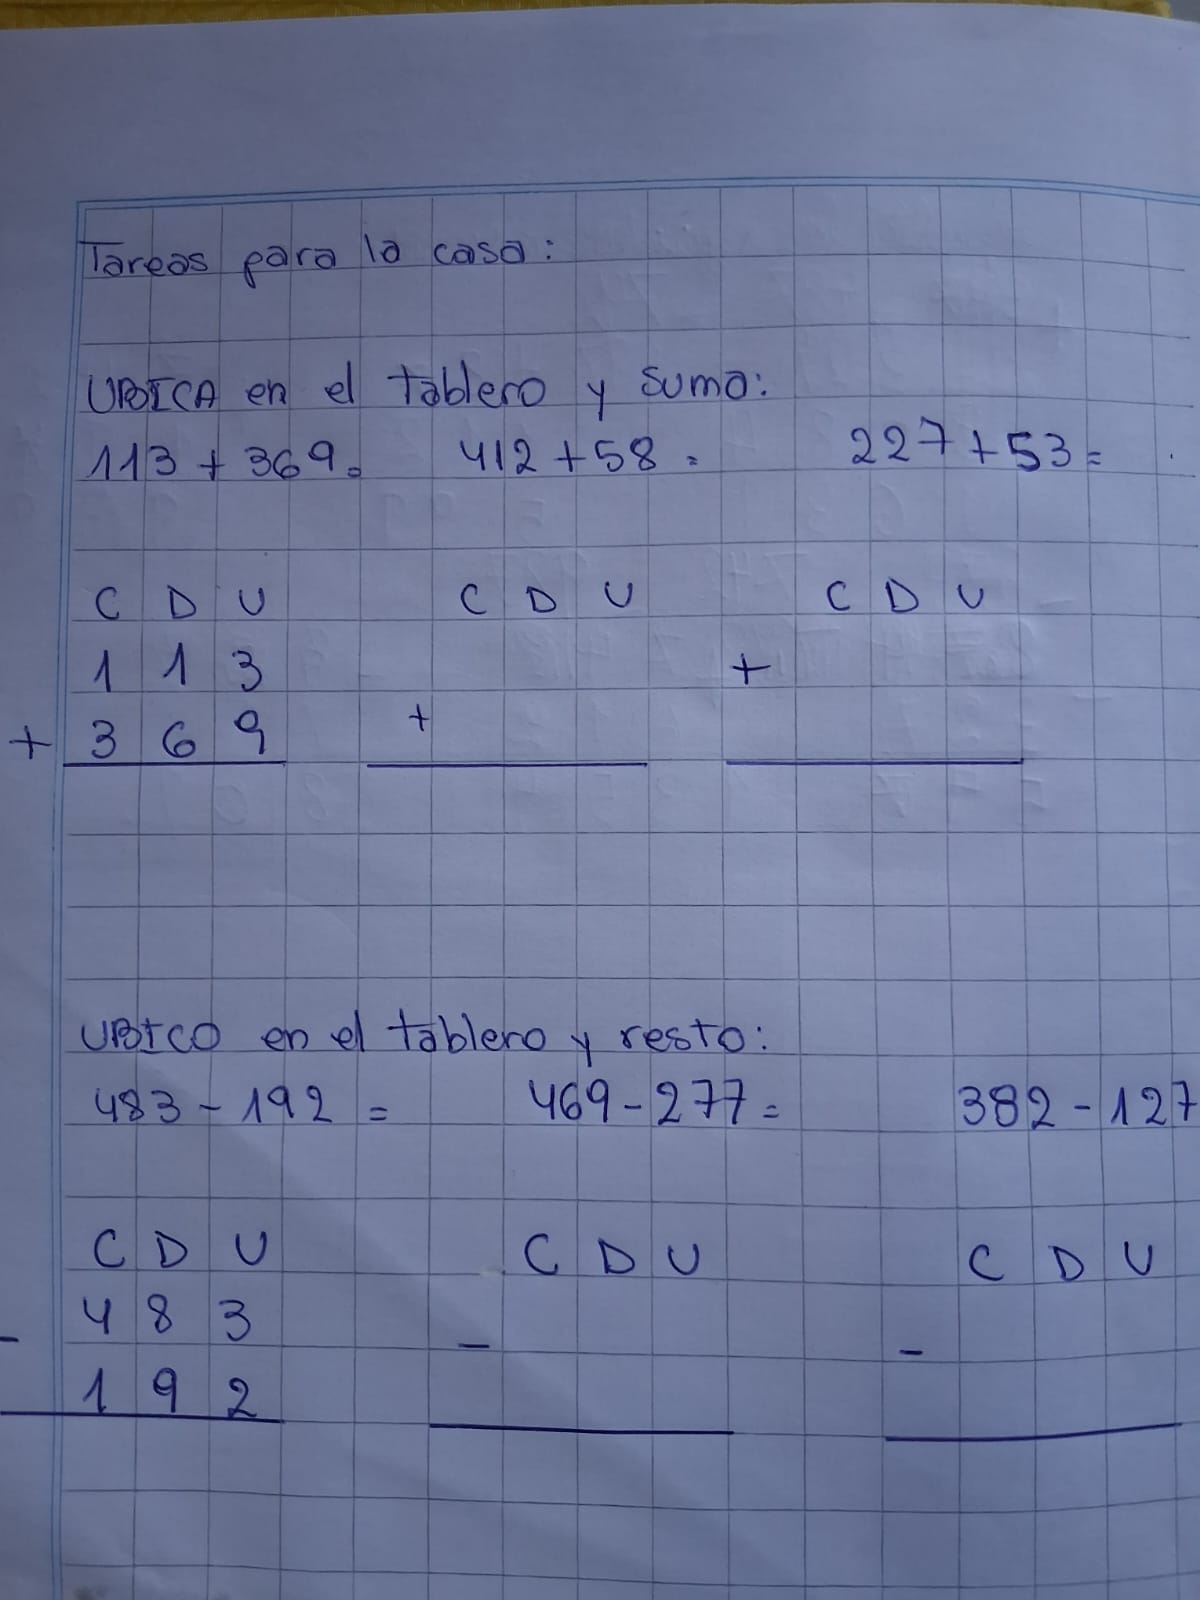 Tareas para la casa:
UBICA en el tablero y suma:
113 + 369 = 412 + 58 = 227 + 53 =
C D U C D U C D U
1 1 3 +
+ 3 6 9 +
UBICO en el tablero y resto:
483 - 192 = 469 - 277 = 382 - 127
C D U C D U C D U
4 8 3
- - -
1 9 2